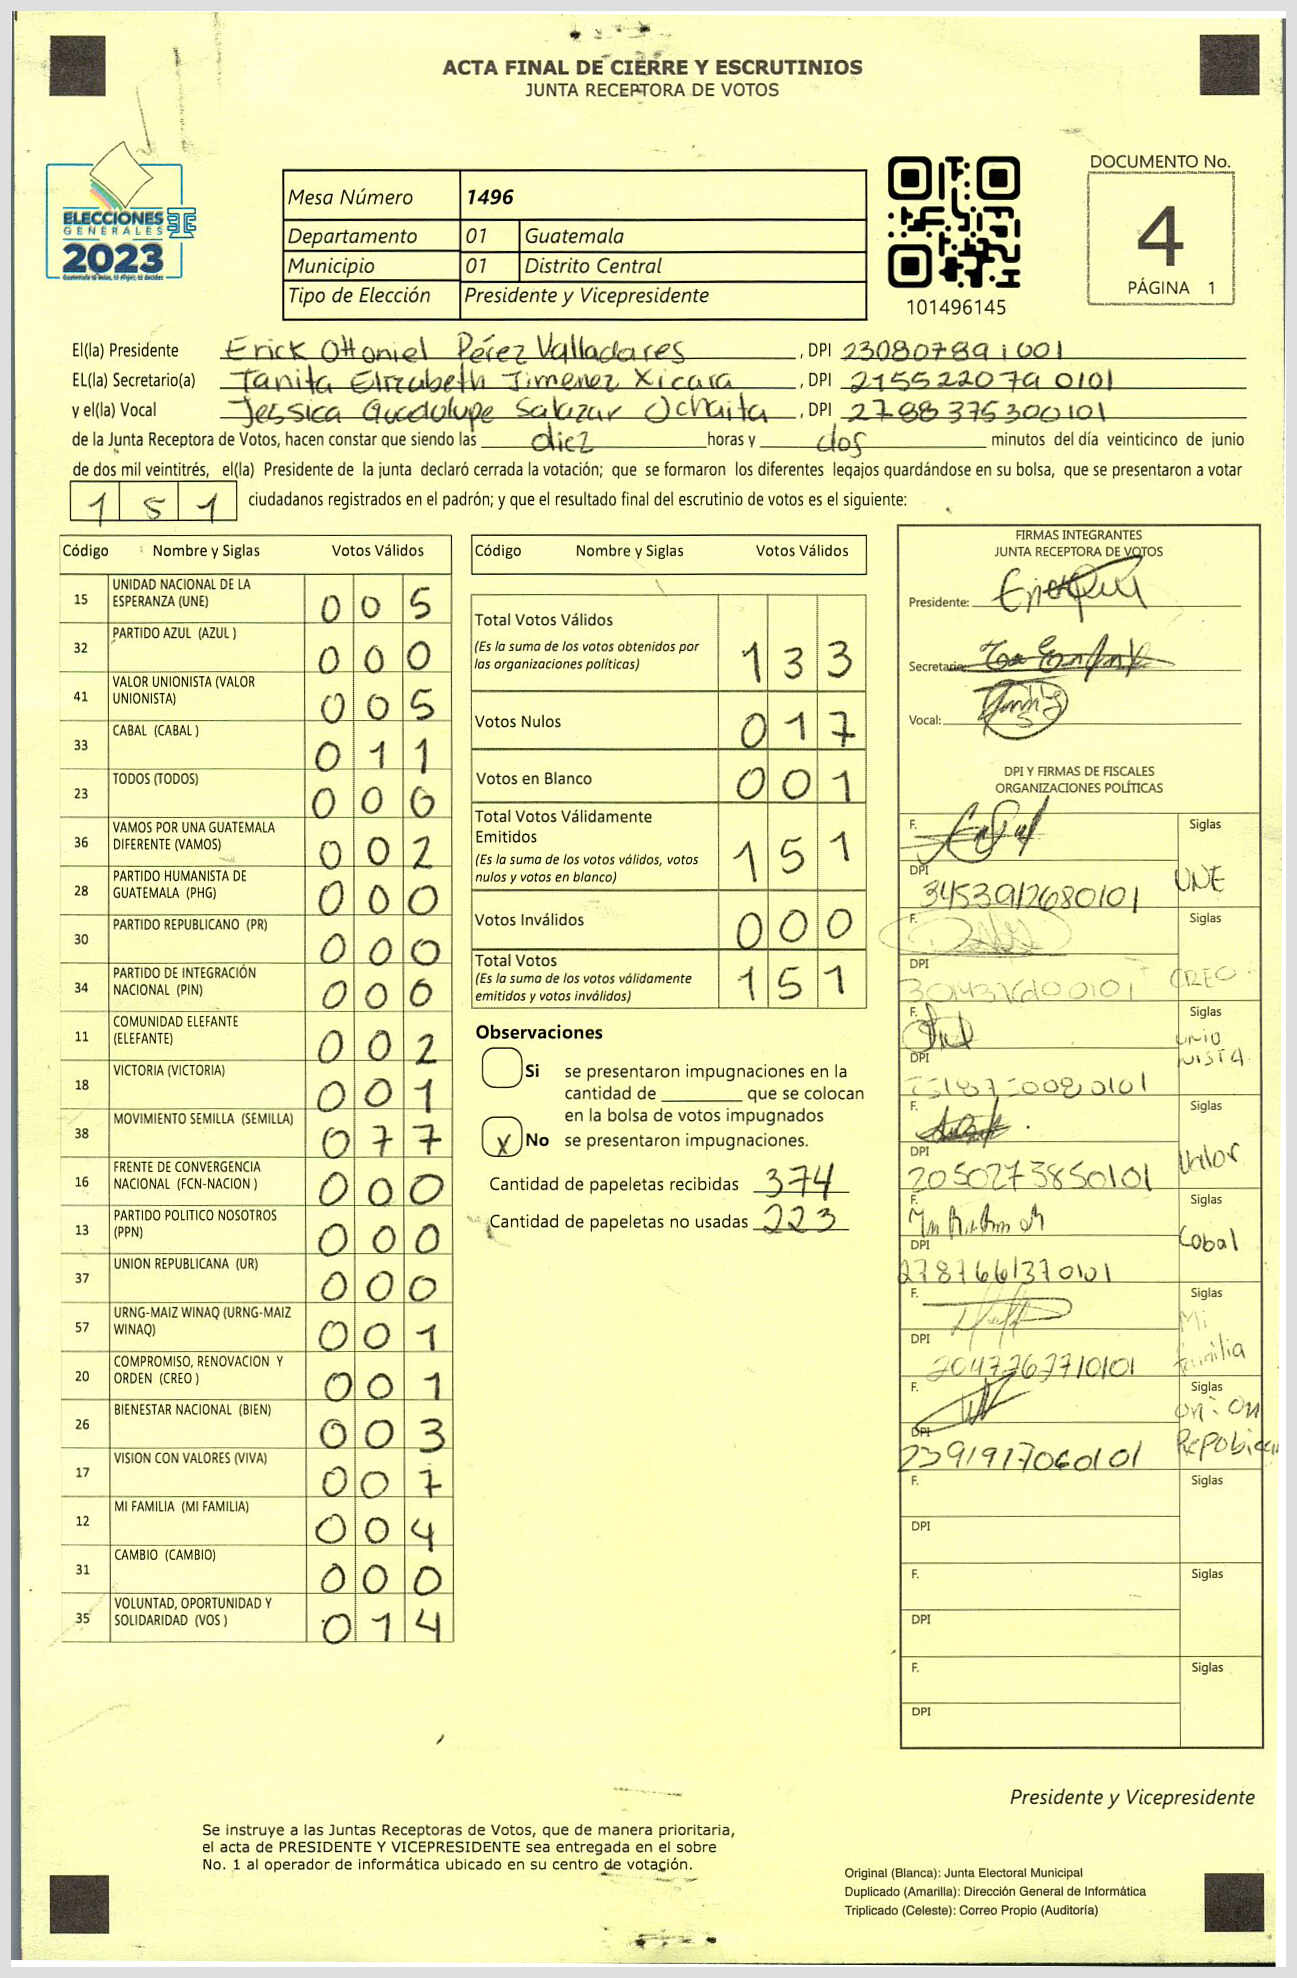 ACTA FINAL DE CIERRE Y ESCRUTINIOS
JUNTA RECEPTORA DE VOTOS
ELECCIONES
GENERALES
2023
Mesa Número 1496
Departamento 01 Guatemala
Municipio 01 Distrito Central
Tipo de Elección Presidente y Vicepresidente
101496145
DOCUMENTO No.
4
PÁGINA 1
El(la) Presidente Erick Ottoniel Pérez Valladares , DPI 230807891001
EL(la) Secretario(a) Tanita Elizabeth Jimenez Xicara , DPI 2155220790101
y el(la) Vocal Jessica Guadulupe Salazar Ochaita , DPI 2788375300101
de la Junta Receptora de Votos, hacen constar que siendo las diez horas y dos minutos del día veinticinco de junio
de dos mil veintitrés, el(la) Presidente de la junta declaró cerrada la votación; que se formaron los diferentes legajos quardándose en su bolsa, que se presentaron a votar
151 ciudadanos registrados en el padrón; y que el resultado final del escrutinio de votos es el siguiente:
Código Nombre y Siglas Votos Válidos
15 UNIDAD NACIONAL DE LA ESPERANZA (UNE) 005
32 PARTIDO AZUL (AZUL ) 000
41 VALOR UNIONISTA (VALOR UNIONISTA) 005
33 CABAL (CABAL ) 011
23 TODOS (TODOS) 000
36 VAMOS POR UNA GUATEMALA DIFERENTE (VAMOS) 002
28 PARTIDO HUMANISTA DE GUATEMALA (PHG) 000
30 PARTIDO REPUBLICANO (PR) 000
34 PARTIDO DE INTEGRACIÓN NACIONAL (PIN) 000
11 COMUNIDAD ELEFANTE (ELEFANTE) 002
18 VICTORIA (VICTORIA) 001
38 MOVIMIENTO SEMILLA (SEMILLA) 077
16 FRENTE DE CONVERGENCIA NACIONAL (FCN-NACION ) 000
13 PARTIDO POLITICO NOSOTROS (PPN) 000
37 UNION REPUBLICANA (UR) 000
57 URNG-MAIZ WINAQ (URNG-MAIZ WINAQ) 001
20 COMPROMISO, RENOVACION Y ORDEN (CREO ) 001
26 BIENESTAR NACIONAL (BIEN) 003
17 VISION CON VALORES (VIVA) 007
12 MI FAMILIA (MI FAMILIA) 004
31 CAMBIO (CAMBIO) 000
35 VOLUNTAD, OPORTUNIDAD Y SOLIDARIDAD (VOS ) 014
Código Nombre y Siglas Votos Válidos
Total Votos Válidos
(Es la suma de los votos obtenidos por
las organizaciones políticas) 133
Votos Nulos 017
Votos en Blanco 001
Total Votos Válidamente
Emitidos
(Es la suma de los votos válidos, votos
nulos y votos en blanco) 151
Votos Inválidos 000
Total Votos
(Es la suma de los votos válidamente
emitidos y votos inválidos) 151
Observaciones
Si se presentaron impugnaciones en la
cantidad de ________ que se colocan
en la bolsa de votos impugnados
X No se presentaron impugnaciones.
Cantidad de papeletas recibidas 374
Cantidad de papeletas no usadas 223
FIRMAS INTEGRANTES
JUNTA RECEPTORA DE VOTOS
Presidente:
Secretario:
Vocal:
DPI Y FIRMAS DE FISCALES
ORGANIZACIONES POLÍTICAS
F. Siglas
DPI 3453912680101 UNE
F. Siglas
DPI CREO
F. Siglas
DPI UNIO
NISTA
F. Siglas
DPI 2050273850101 Valor
F. Siglas
DPI 2787661370101 Cabal
F. Siglas
DPI 2047767710101 Mi
familia
F. Siglas
DPI 2391917060101
F. Siglas
DPI
F. Siglas
DPI
F. Siglas
DPI
Presidente y Vicepresidente
Se instruye a las Juntas Receptoras de Votos, que de manera prioritaria,
el acta de PRESIDENTE Y VICEPRESIDENTE sea entregada en el sobre
No. 1 al operador de informática ubicado en su centro de votación.
Original (Blanca): Junta Electoral Municipal
Duplicado (Amarilla): Dirección General de Informática
Triplicado (Celeste): Correo Propio (Auditoría)